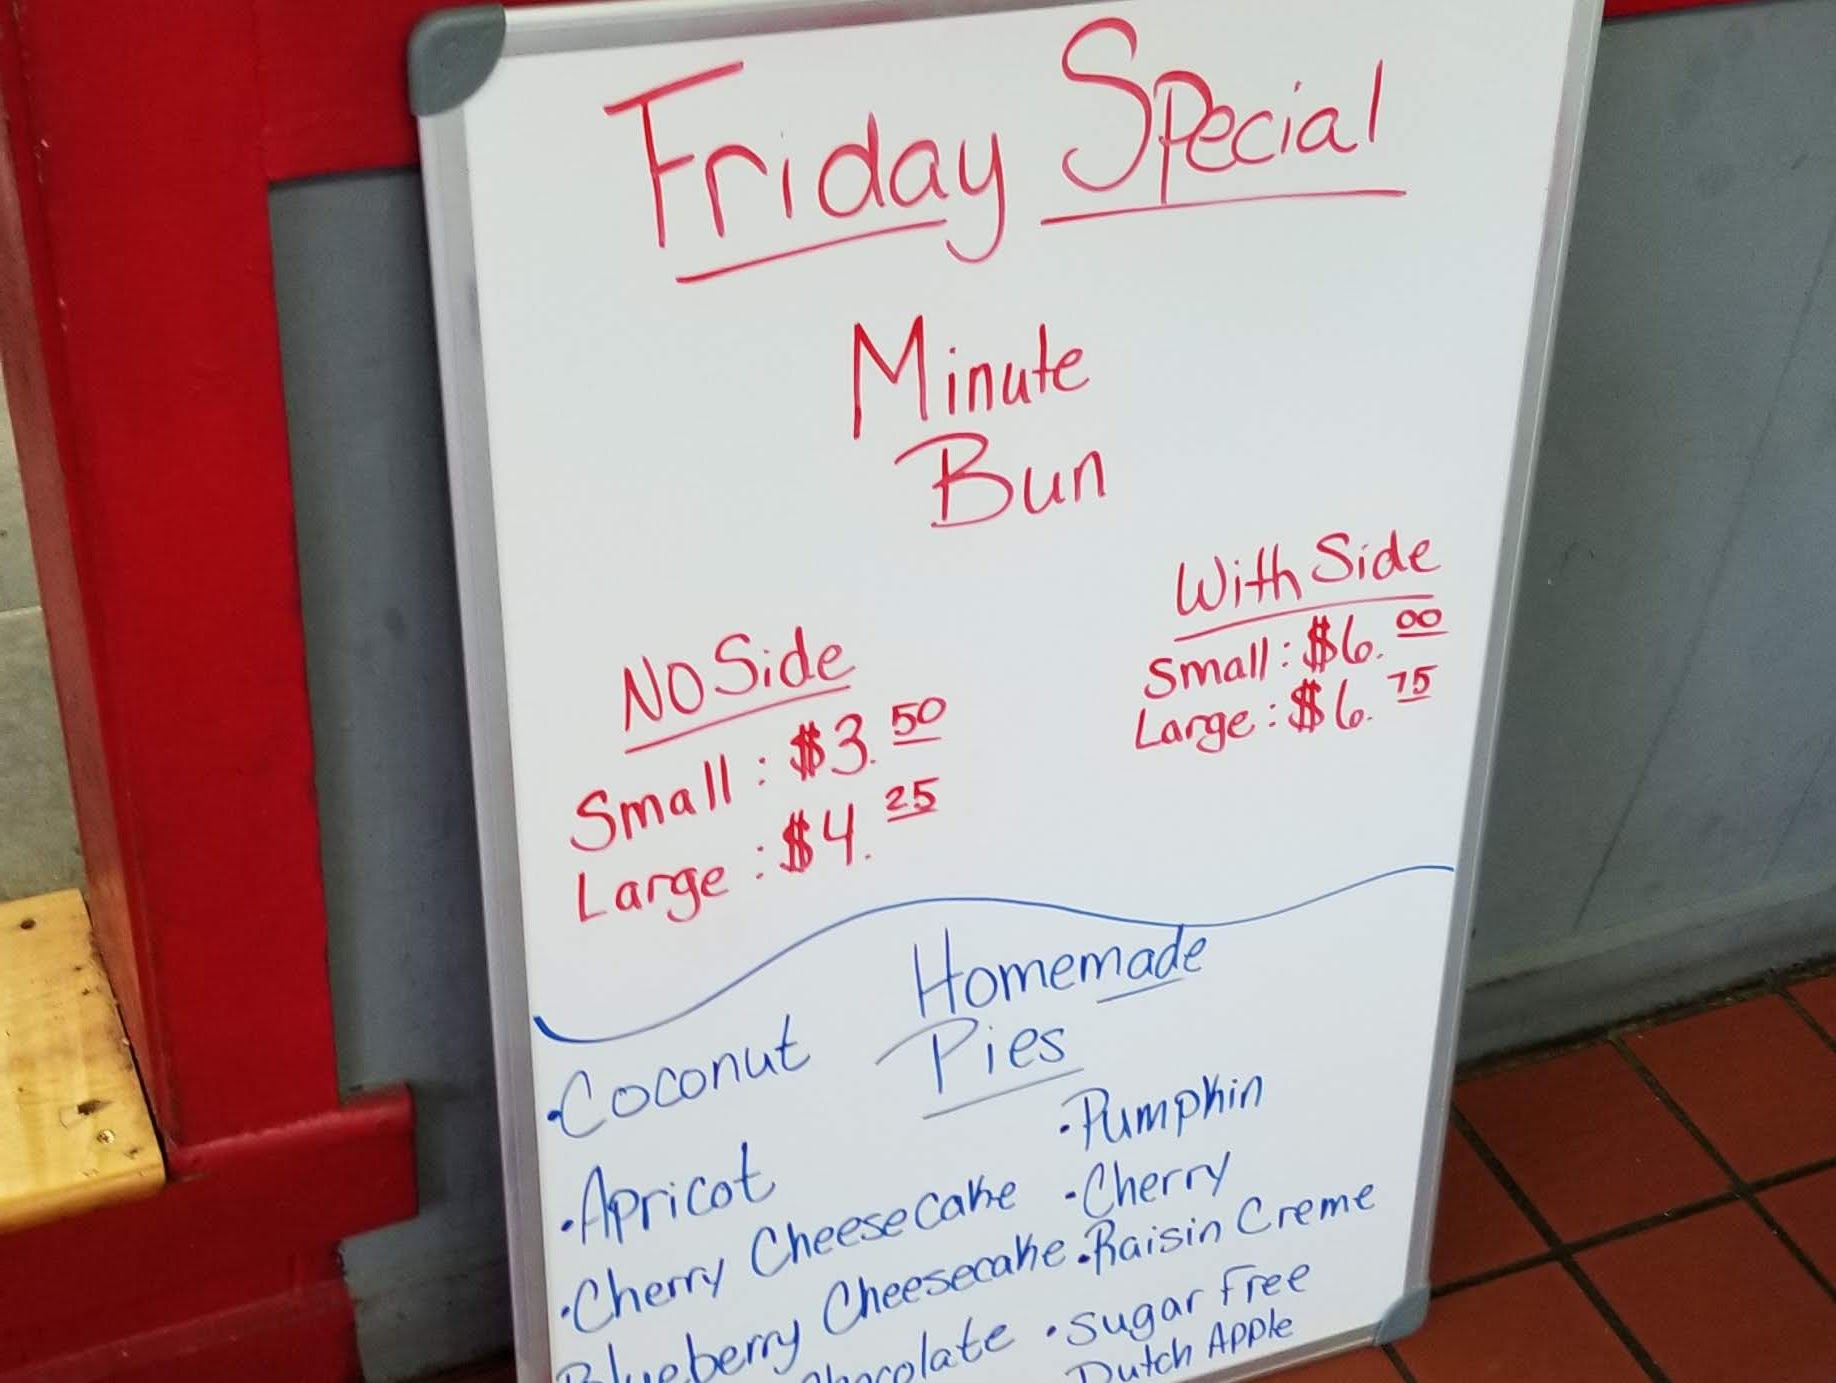 Friday Special
Minute
Bun
No Side
Small : $3.50
Large : $4.25
With Side
Small : $6.00
Large : $6.75
Homemade
Pies
•Coconut
•Apricot
•Cherry Cheesecake
Blueberry Cheesecake
Chocolate
•Pumpkin
•Cherry
•Raisin Creme
•Sugar Free
Dutch Apple